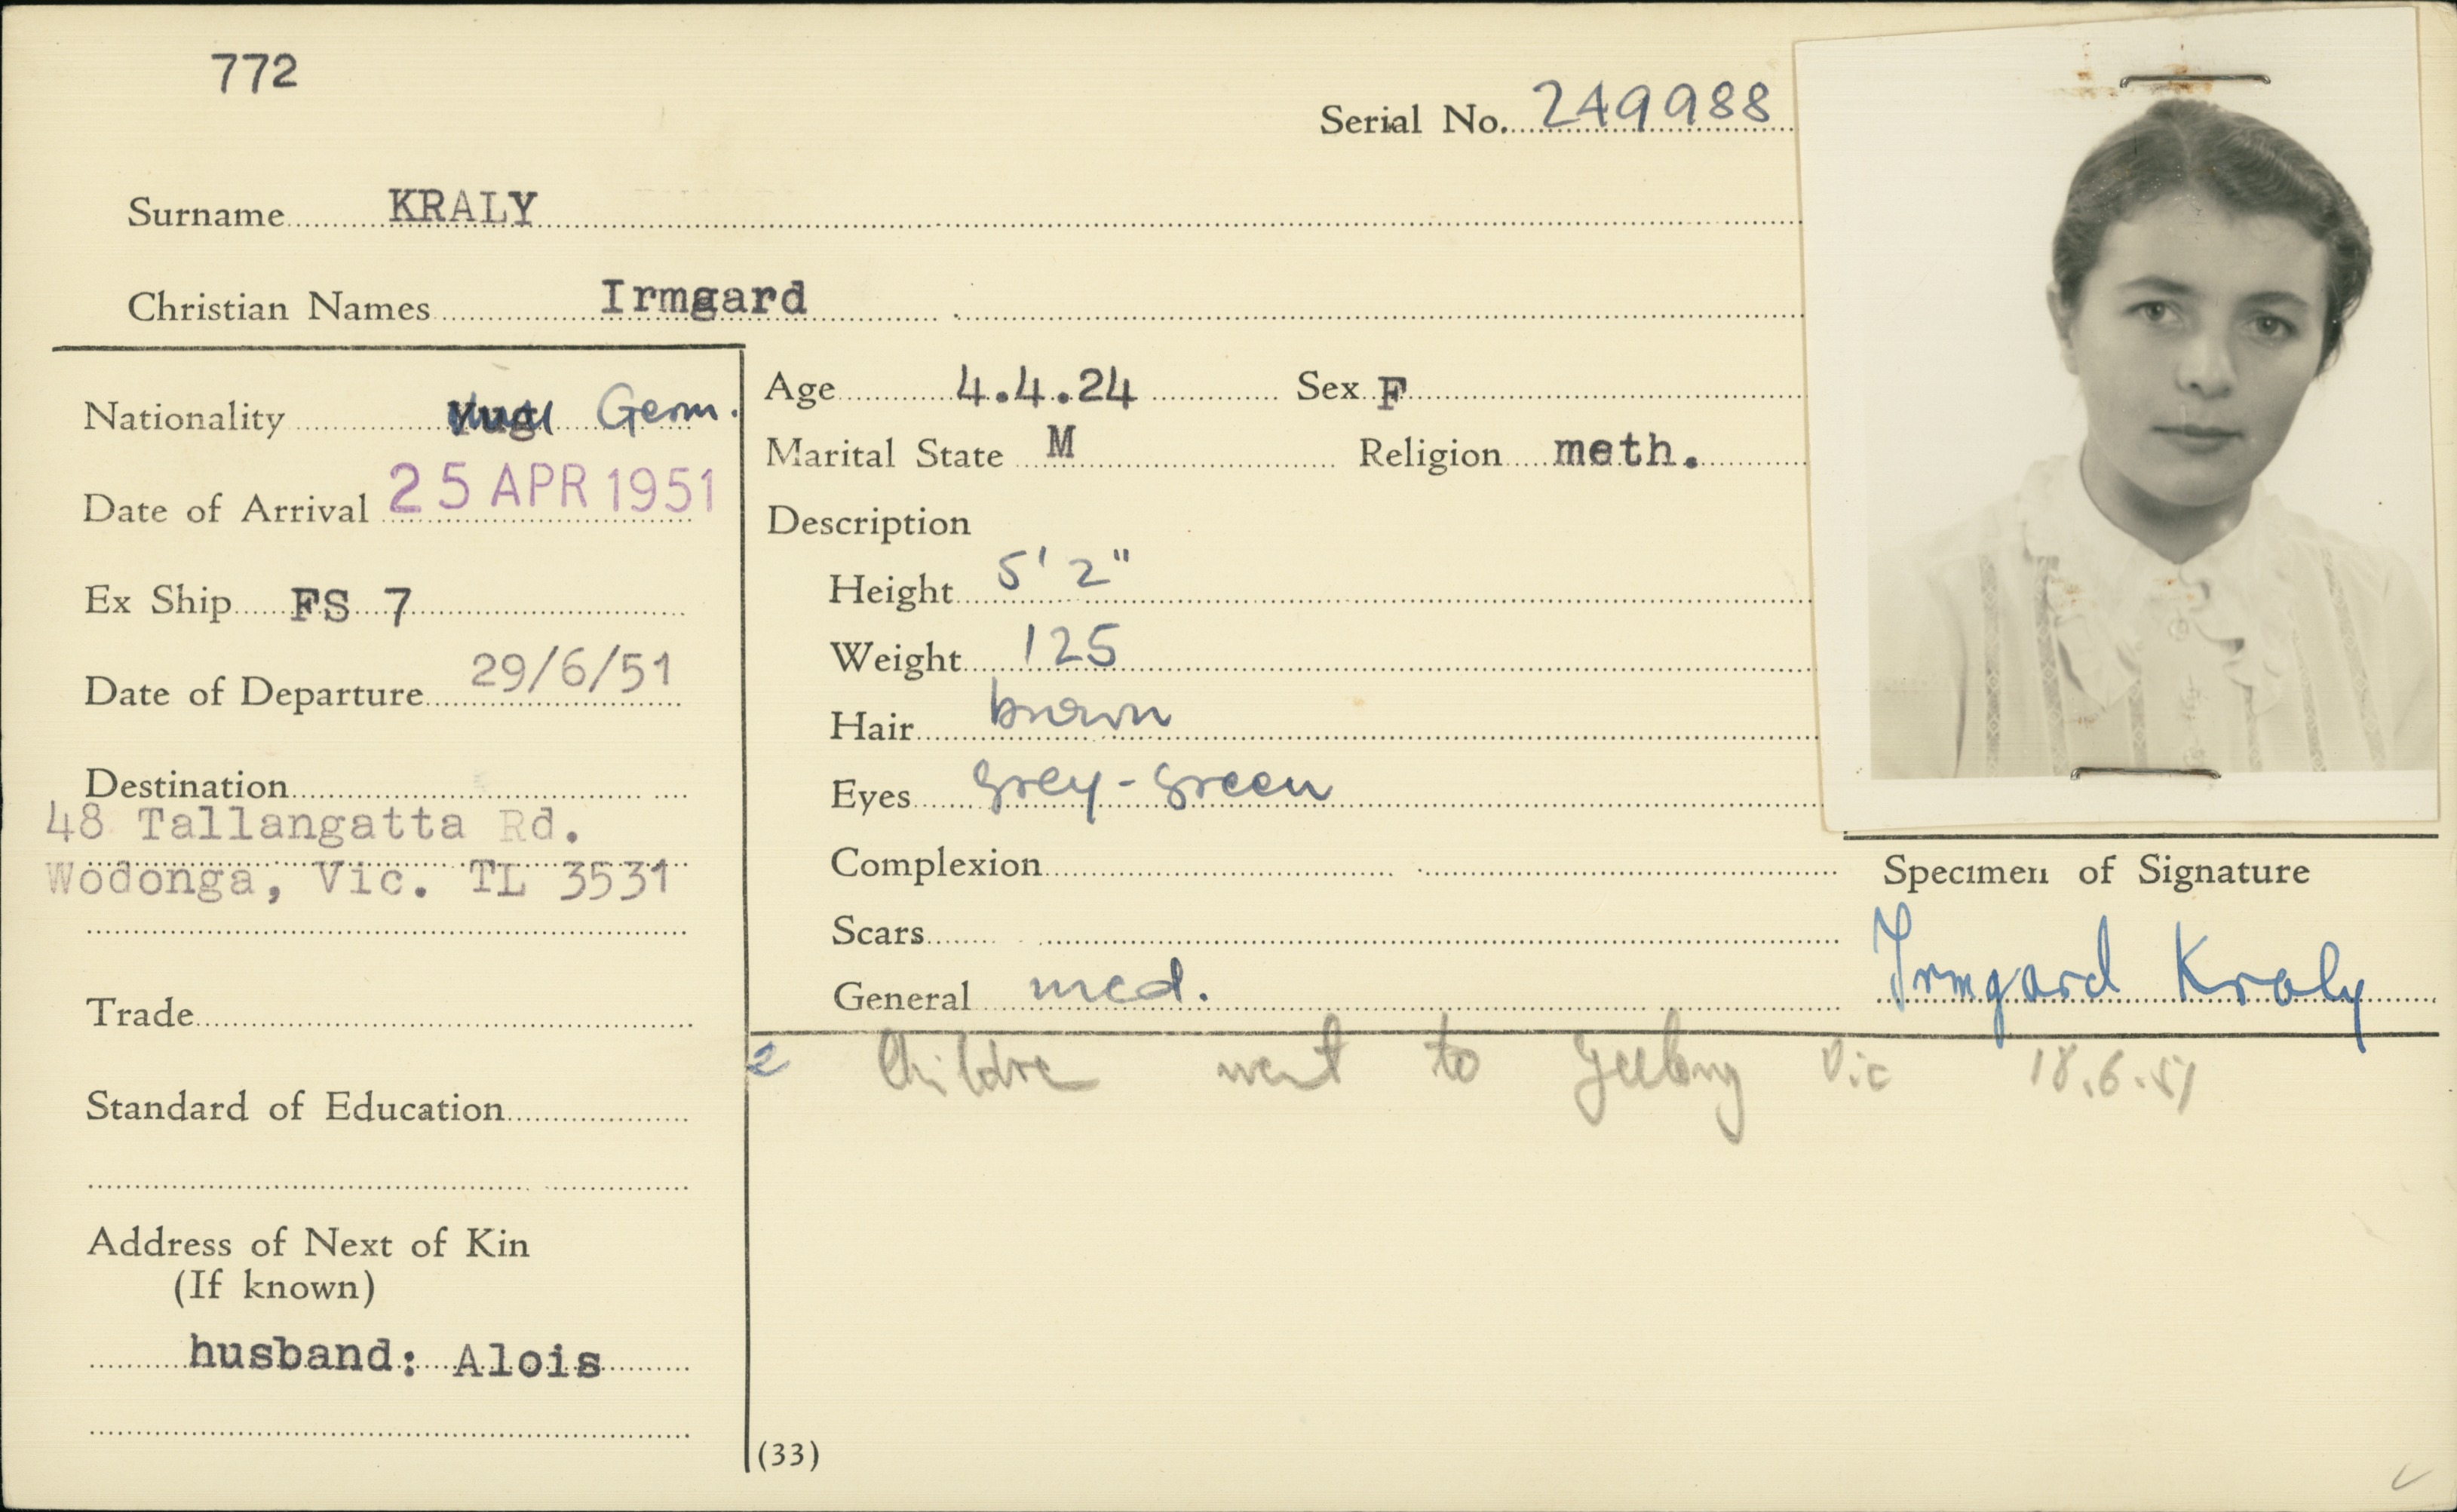 772
Serial No. 249988
Surname KRALY
Christian Names Irmgard
Nationality Yugl Germ.
Date of Arrival 25 APR 1951
Ex Ship FS 7
Date of Departure 29/6/51
Destination
48 Tallangatta Rd.
Wodonga, Vic. TL 3531
Trade
Standard of Education
Address of Next of Kin
(If known)
husband: Alois
Age 4.4.24 Sex F
Marital State M Religion meth.
Description
Height 5' 2"
Weight 125
Hair brown
Eyes grey-green
Complexion
Scars
General med.
Specimen of Signature
Irmgard Kraly
2 Children went to Geelong Vic 18.6.51
(33)